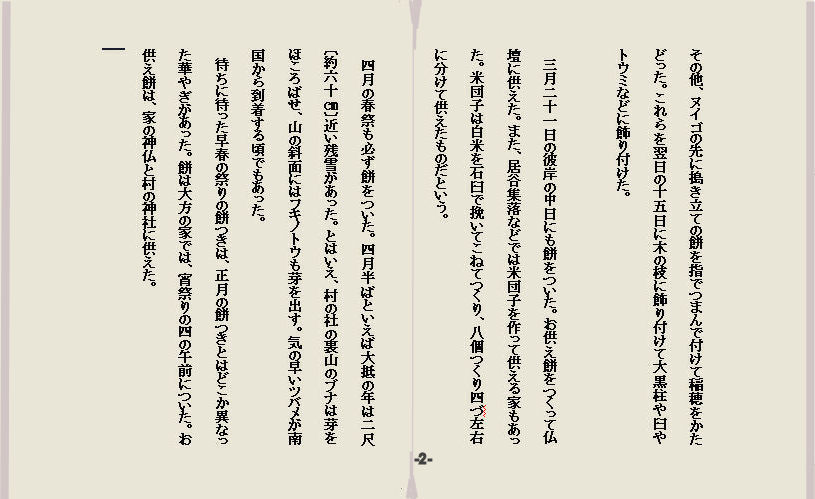 その他、ヌイゴの先に搗き立ての餅を指でつまんで付けて稲穂をかた
どった。これらを翌日の十五日に木の枝に飾り付けて大黒柱や臼や
トウミなどに飾り付けた。
三月二十一日の彼岸の中日にも餅をついた。お供え餅をつくって仏
壇に供えた。また、居谷集落などでは米団子を作って供える家もあっ
た。米団子は白米を石臼で挽いてこねてつくり、八個つくり四づ左右
に分けて供えたものだという。
四月の春祭も必ず餅をついた。四月半ばといえば大抵の年は二尺
〔約六十㎝〕近い残雪があった。とはいえ、村の社の裏山のブナは芽を
ほころばせ、山の斜面にはフキノトウも芽を出す。気の早いツバメが南
国から到着する頃でもあった。
待ちに待った早春の祭りの餅つきは、正月の餅つきとはどこか異なっ
た華やぎがあった。餅は大方の家では、宵祭りの四の午前についた。お
供え餅は、家の神仏と村の神社に供えた。
-2-